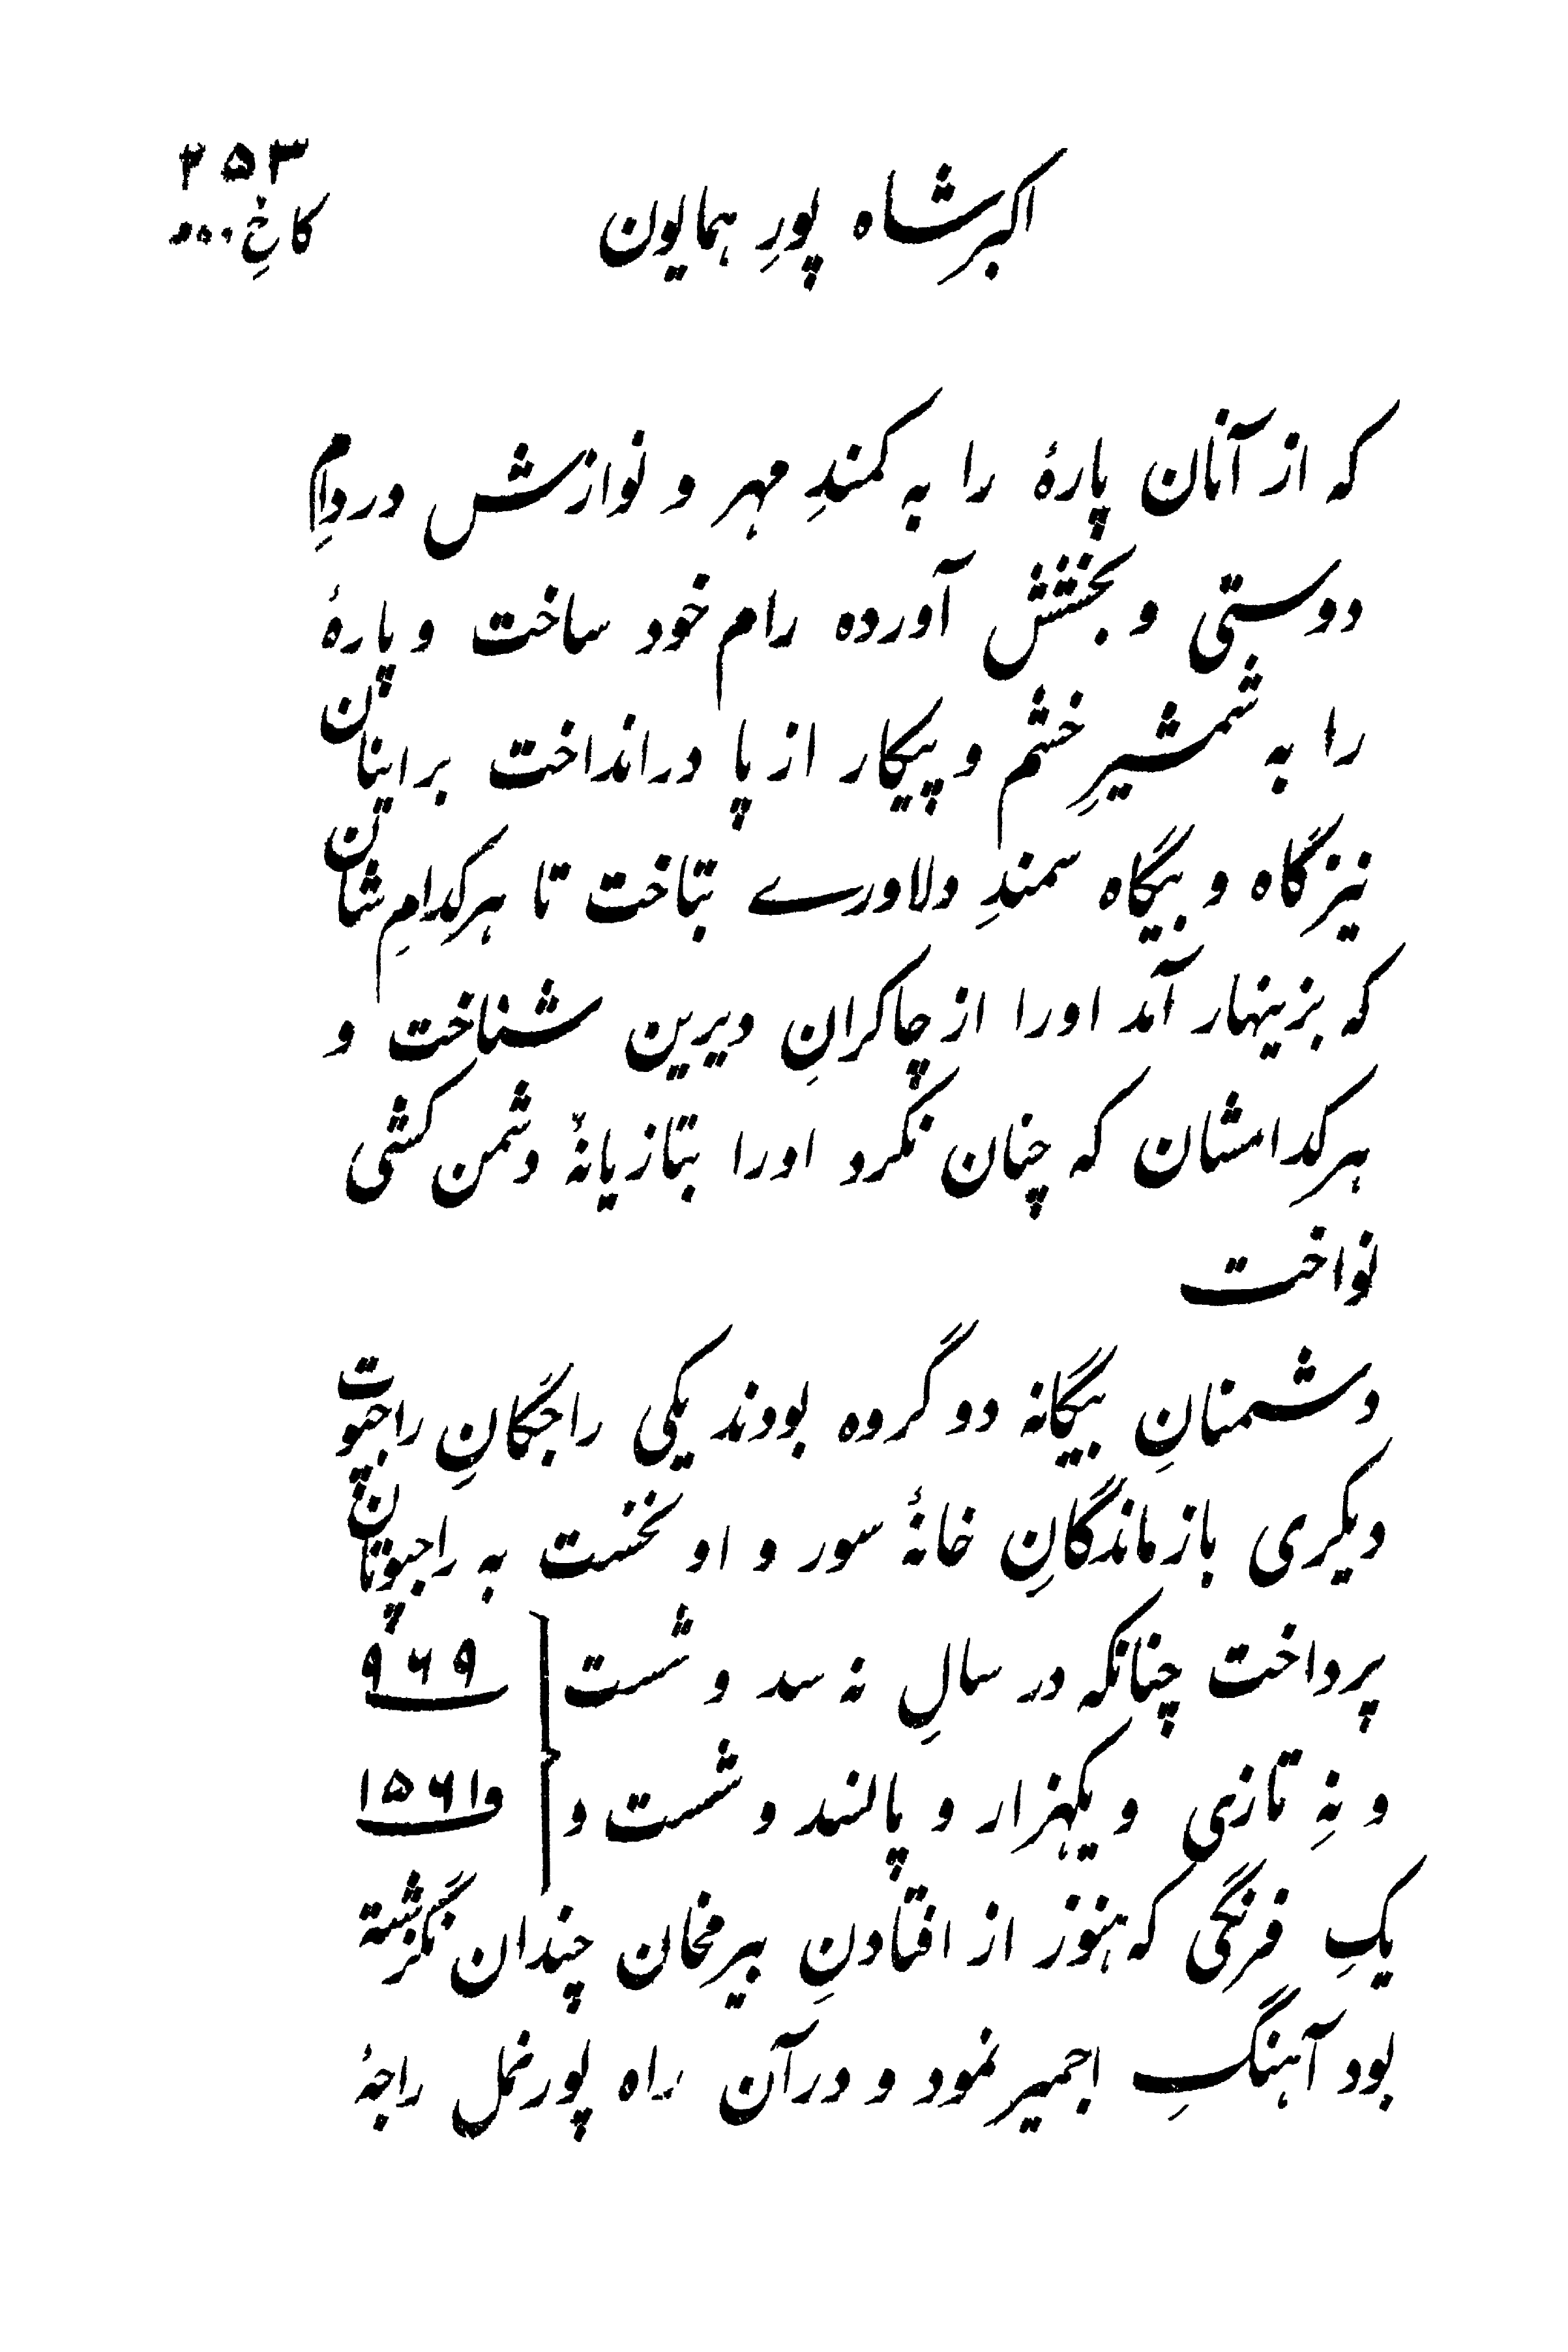 ۲۵۳
اکبرشاه پورِ همایون
کاخِ ...
که از آنان پارهٔ را به کمندِ مهر و نوازش در دامِ
دوستی و بخشش آورده رام خود ساخت و پارهٔ
را به شمشیرِ خشم و پیکار از پا درانداخت بر اینان
نیز گاه و بیگاه سمندِ دلاورے بتاخت تا هرکدامِ شان
که بزینهار آمد اورا از چاکرانِ دیرین شناخت و
هرکدامشان که چنان نکرد اورا بتازیانهٔ دشمن کشی
نواخت
دشمنانِ بیگانه دو گروه بودند یکی راجگانِ راجپوت
دیکری بازماندگانِ خانهٔ سور و او نخست به راجپوتان
پرداخت چنانکه در سالِ نه سد و شست ۹۶۹
و نهِ تازی و یکهزار و پالسند و شست و ۱۵۶۱و
یکِ فرنگی که هنوز از افتادنِ بیرمخان چندان نگزشته
بود آهنگِ اجمیر نمود و در آن راه پورنمل راجهٔ